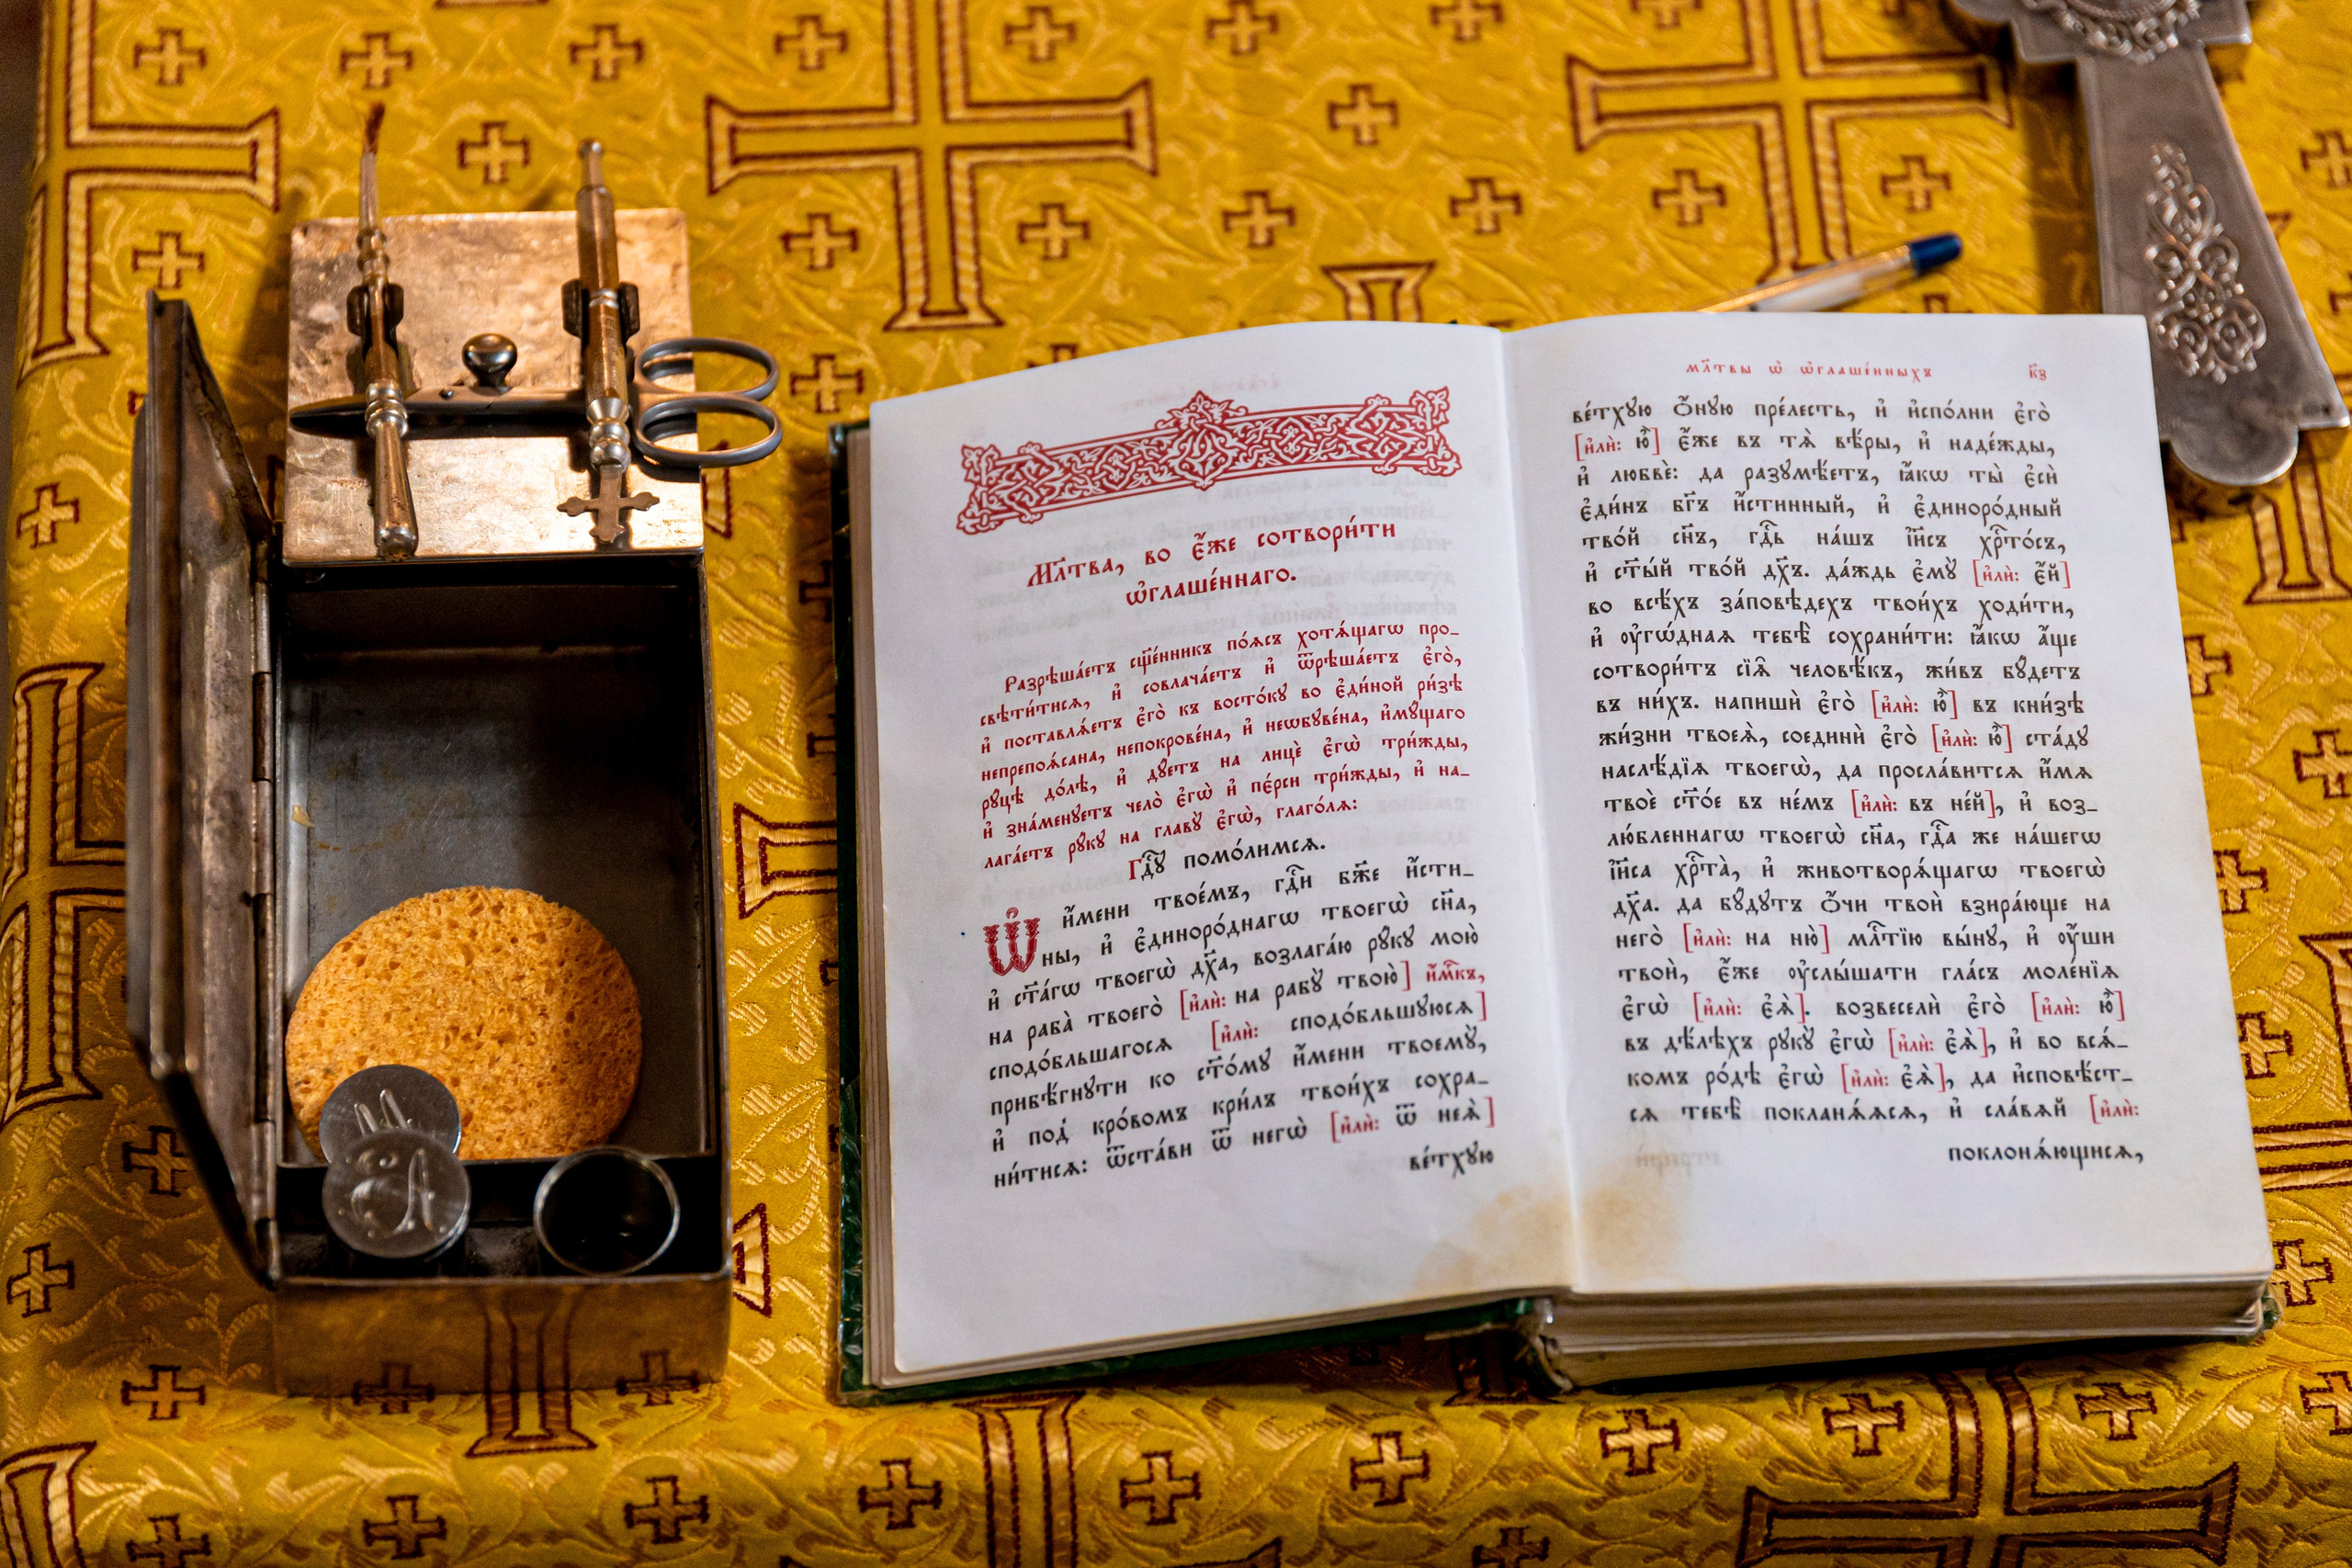 Мл҃тва, во є҆́же сотвори́ти
ѡ҆глаше́ннаго.
Разрѣша́етъ сщ҃е́нникъ по́ѧсъ хотѧ́щагѡ про_
свѣти́тисѧ, и҆ совлача́етъ и҆ ѿрѣша́етъ є҆го̀,
и҆ поставлѧ́етъ є҆го̀ къ восто́кꙋ во є҆ди́ной ри́зѣ
непрепоѧ́сана, непокрове́на, и҆ неѡбꙋве́на, и҆мꙋ́щаго
рꙋ́цѣ до́лѣ, и҆ дꙋ́етъ на лицѐ є҆гѡ̀ три́жды,
и҆ зна́менꙋетъ чело̀ є҆гѡ̀ и҆ пе́рси три́жды, и҆ на_
лага́етъ рꙋ́кꙋ на главꙋ̀ є҆гѡ̀, глаго́лѧ:
Гдⷭ҇ꙋ помо́лимсѧ.
Ѡ҆ и҆́мени твое́мъ, гдⷭ҇и бж҃е и҆́сти_
ны, и҆ є҆диноро́днагѡ твоегѡ̀ сн҃а,
и҆ ст҃а́гѡ твоегѡ̀ дх҃а, возлага́ю рꙋ́кꙋ мою̀
на раба̀ твоего̀ [и҆лѝ: на рабꙋ̀ твою̀] и҆́мⸯкъ,
сподо́бльшагосѧ [и҆лѝ: сподо́бльшꙋюсѧ]
прибѣ́гнꙋти ко ст҃о́мꙋ и҆́мени твоемꙋ̀,
и҆ под̾ кро́вомъ кри́лъ твои́хъ сохра_
ни́тисѧ: ѿста́ви ѿ негѡ̀ [и҆лѝ: ѿ неѧ̀]
ве́тхꙋю
мл҃твы ѡ҆ ѡ҆глаше́нныхъ к҃з
ве́тхꙋю ѻ҆́нꙋю пре́лесть, и҆ и҆спо́лни є҆го̀
[и҆лѝ: ю҆̀] є҆́же въ тѧ̀ вѣ́ры, и҆ наде́жды,
и҆ любвѐ: да разꙋмѣ́етъ, ꙗ҆́кѡ ты̀ є҆сѝ
є҆ди́нъ бг҃ъ и҆́стинный, и҆ є҆диноро́дный
тво́й сн҃ъ, гдⷭ҇ь на́шъ і҆и҃съ хрⷭ҇то́съ,
и҆ ст҃ы́й тво́й дх҃ъ. да́ждь є҆мꙋ̀ [и҆лѝ: є҆́й]
во всѣ́хъ за́повѣдехъ твои́хъ ходи́ти,
и҆ ᲂу҆гѡ́днаѧ тебѣ̀ сохрани́ти: ꙗ҆́кѡ а҆́ще
сотвори́тъ сїѧ̑ человѣ́къ, жи́въ бꙋ́детъ
въ ни́хъ. напишѝ є҆го̀ [и҆лѝ: ю҆̀] въ кни́зѣ
жи́зни твоеѧ̀, соединѝ є҆го̀ [и҆лѝ: ю҆̀] ста́дꙋ
наслѣ́дїѧ твоегѡ̀, да просла́витсѧ и҆́мѧ
твоѐ ст҃о́е въ не́мъ [и҆лѝ: въ не́й], и҆ воз_
лю́бленнагѡ твоегѡ̀ сн҃а, гдⷭ҇а же на́шегѡ
і҆и҃са хрⷭ҇та̀, и҆ животворѧ́щагѡ твоегѡ̀
дх҃а. да бꙋ́дꙋтъ ѻ҆́чи твоѝ взира́юще на
него̀ [и҆лѝ: на ню̀] млⷭ҇тїю вы́нꙋ, и҆ ᲂу҆́ши
твоѝ, є҆́же ᲂу҆слы́шати гла́съ моле́нїѧ
є҆гѡ̀ [и҆лѝ: є҆ѧ̀]. возвеселѝ є҆го̀ [и҆лѝ: ю҆̀]
въ дѣ́лѣхъ рꙋкꙋ̀ є҆гѡ̀ [и҆лѝ: є҆ѧ̀], и҆ во всѧ́_
комъ ро́дѣ є҆гѡ̀ [и҆лѝ: є҆ѧ̀], да и҆сповѣ́ст_
сѧ тебѣ̀ покланѧ́ѧсѧ, и҆ сла́вѧй [и҆лѝ:
поклонѧ́ющисѧ,